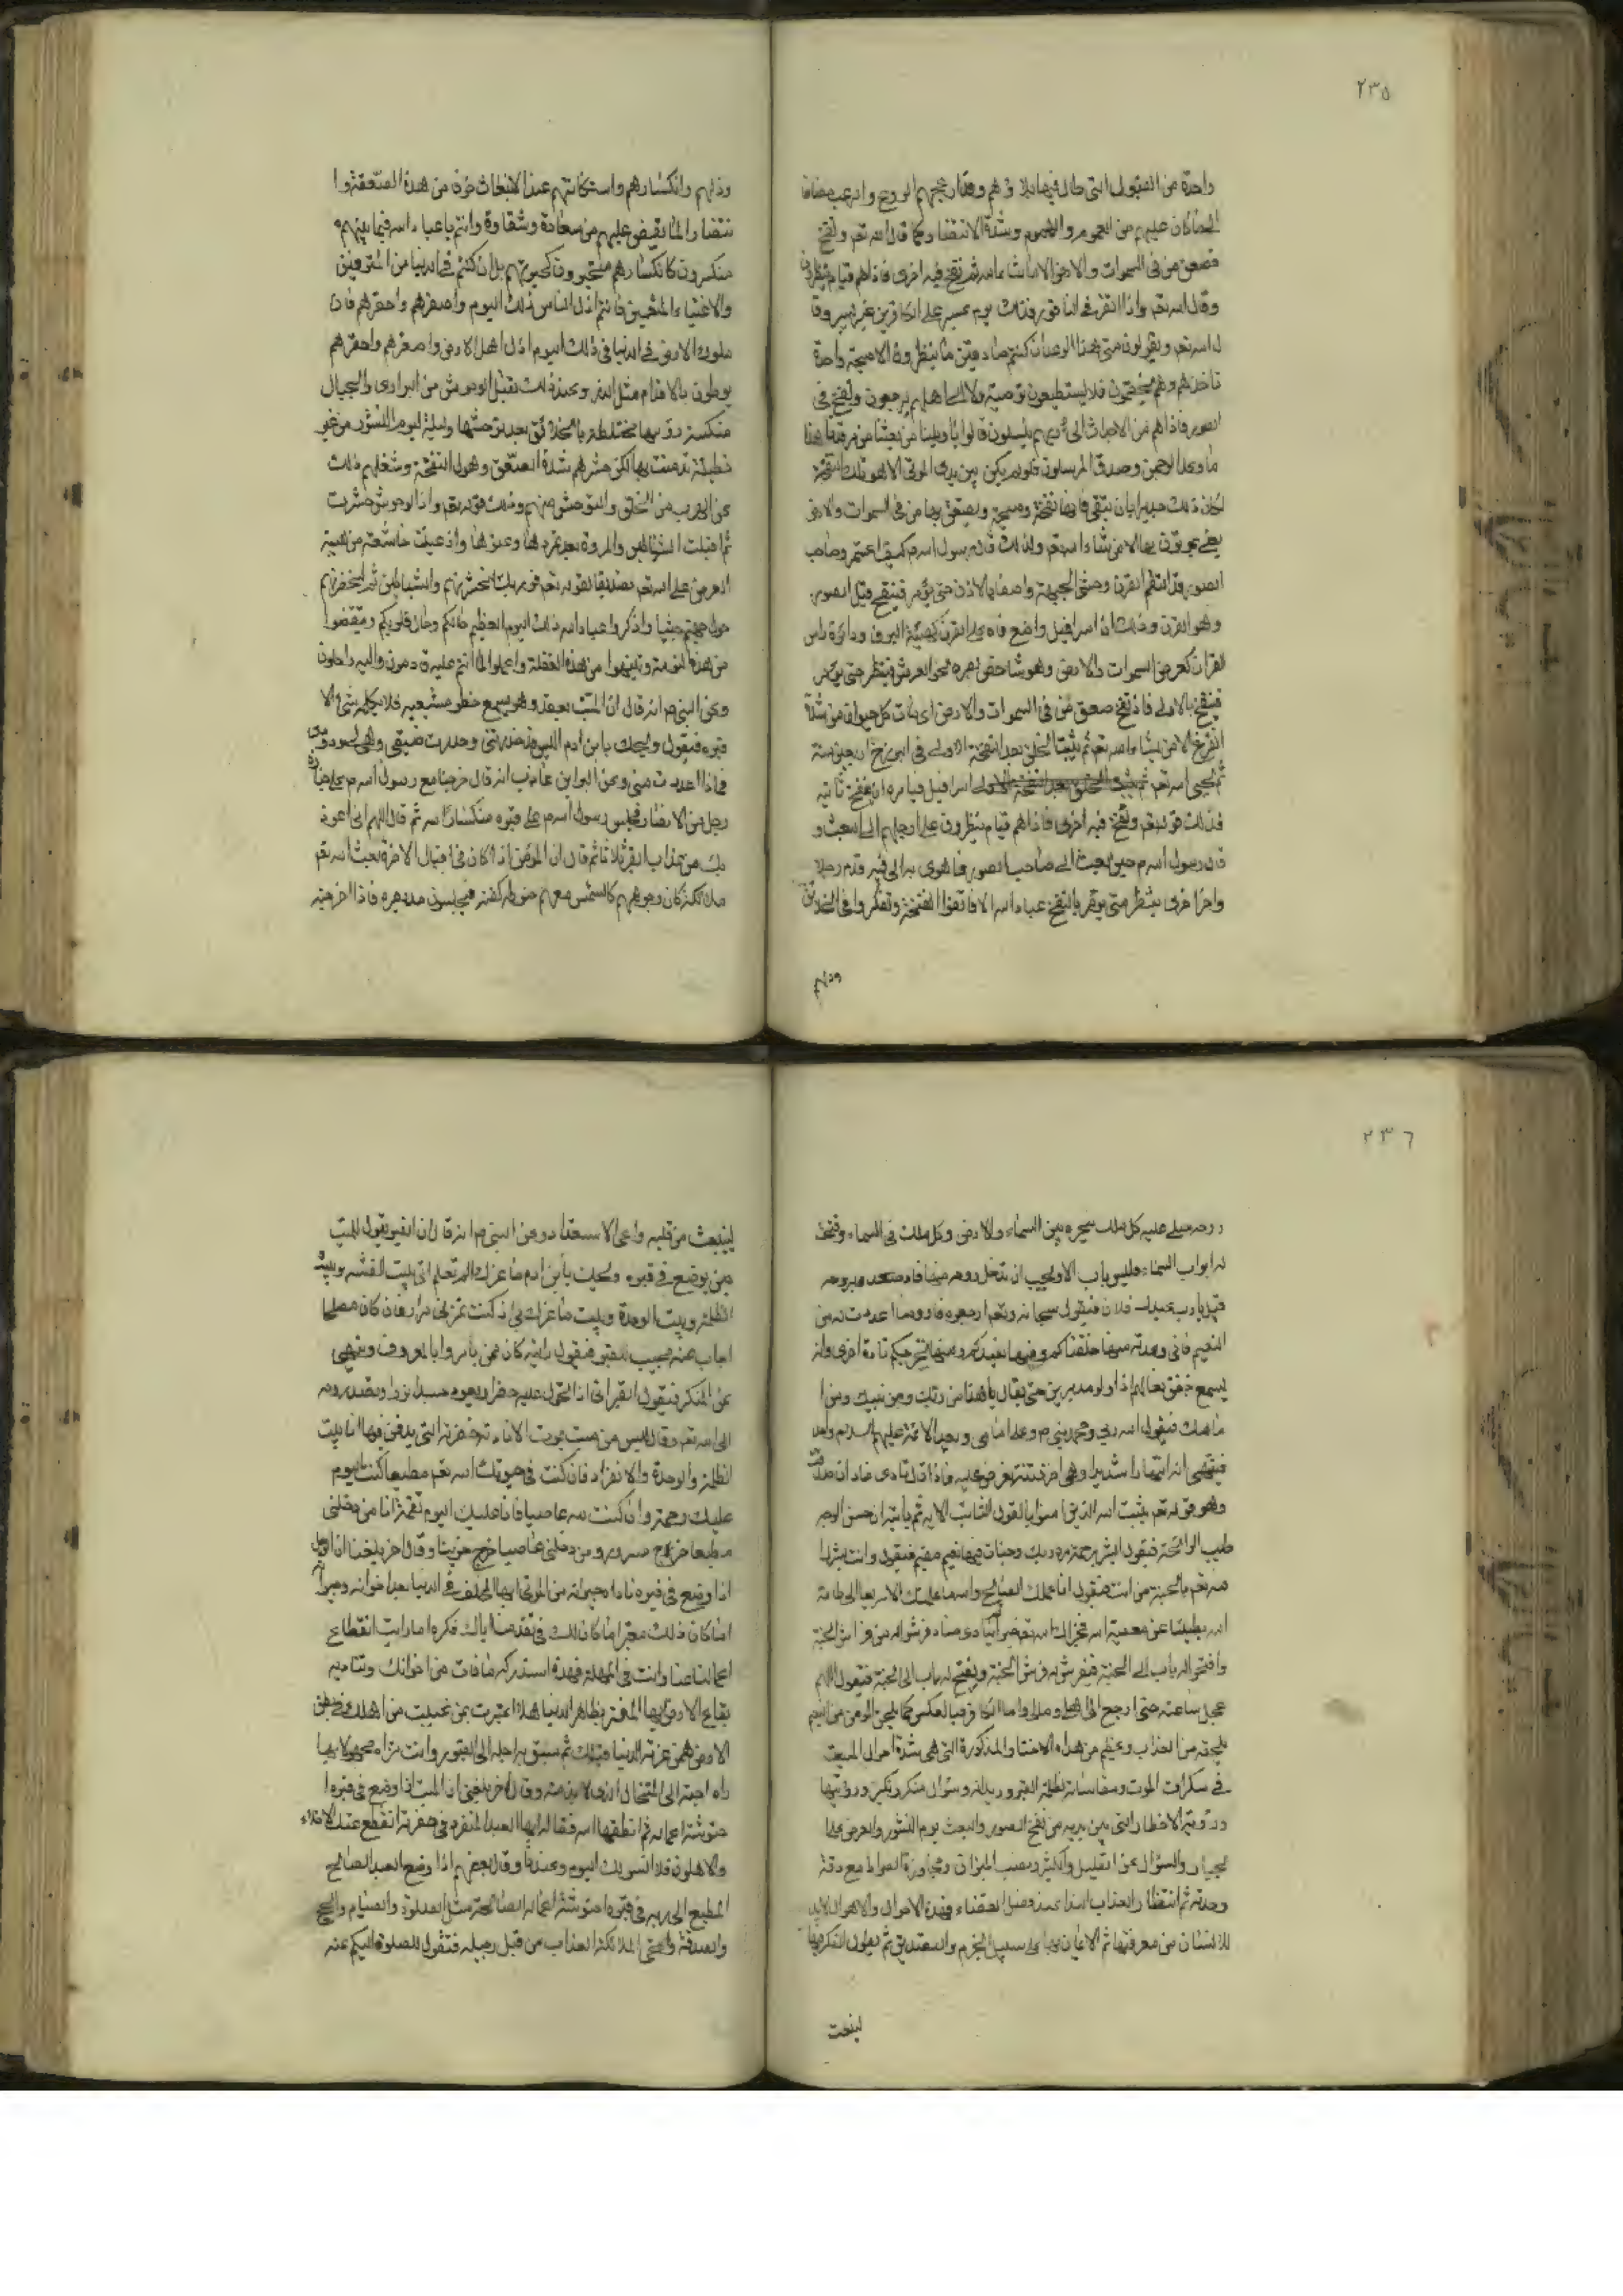 ٢٣٥
واحدة من القبور التى طال فيها بلاؤهم وقد ازعجهم الروع والرعب مضافا
الى ما كان عليهم من الهموم والغموم وشدة الانتظار كما قال الله تعم ونفخ
فصعق من فى السموات والارض الا ما شاء الله ثم نفخ فيه اخرى فاذاهم قيام ينظرون
وقال الله تعم واذا نقر فى الناقور فذلك يوم عسير على الكافرين غير يسير وقا
ل الله تعم ويقولون متى هذا الوعد ان كنتم صادقين ما ينظرون الا صيحة واحدة
تاخذهم وهم يخصمون فلا يستطيعون توصية ولا الى اهلهم يرجعون ونفخ فى
الصور فاذاهم من الاجداث الى ربهم ينسلون قالوا يا ويلنا من بعثنا من مرقدنا هذا
ما وعد الرحمن وصدق المرسلون فلو لم يكن بين يدى الموتى الا هول تلك النفخة
لكان ذلك جديرا بان يتقى فانها نفخة وصيحة ويصعق بها من فى السموات والارض
يعنى يموتون بها الا من شاء الله تعم ولذلك قال رسول الله م كيف انعم وصاحب
الصور قد التقم القرن وحنى الجبهة واصغى بالاذن حتى يؤمر فينفخ قيل الصور
وهو القرن وذلك ان اسرافيل واضع فاه على القرن كهيئة البوق ودائرة راس
القرن كعرض السموات والارض وهو شاخص بصره نحو العرش ينتظر حتى يؤمر
فينفخ بالاولى فاذا نفخ صعق من فى السموات والارض اى مات كل حيوان من شدة
الفزع الا من يشاء الله تعم ثم يلبث الخلق بعد النفخة الاولى فى البرزخ اربعين سنة
ثم يحيى الله تعم اسرافيل فيامره ان ينفخ ثانية
فذلك قوله تعم ونفخ فيه اخرى فاذاهم قيام ينظرون على ارجلهم الى البعث و
قال رسول الله م حين بعث الى صاحب الصور فاهوى به الى فيه قدم رجلا
واخر اخرى ينتظر متى يؤمر بالنفخ عباد الله الا فاتقوا النفخة وتفكروا فى الخلائق
وذلهم
وذلهم وانكسارهم واستكانتهم عند الانبعاث خوفا من هذه الصعقة وا
نتظارا لما يقضى عليهم من سعادة وشقاوة وانتم يا عباد الله فيما بينهم
منكسرون كانكسارهم متحيرون كحيرتهم بل ان كنتم فى الدنيا من المترفين
والاغنياء المتنعمين فانتم اذل الناس ذلك اليوم واصغرهم واحقرهم فان
ملوك الارض فى الدنيا فى ذلك اليوم اذل اهل الارض واصغرهم واحقرهم
يوطون بالاقدام مثل الذر وعند ذلك تقبل الوحوش من البرارى والجبال
منكسة رؤسها مختلطة بالخلائق بعد توحشها ذليلة ليوم النشور من غير
خطيئة تدنست بها لكن حشرهم شدة الصعق وهول النفخة وشغلهم ذلك
عن الهرب من الخلق والتوحش منهم وذلك قوله تعم واذا الوحوش حشرت
ثم اقبلت الشياطين والمردة بعد تمردها وعتوها واذعنت خاشعة من هيبة
العرض على الله تعم تصديقا لقوله تعم فوربك لنحشرنهم والشياطين ثم لنحضرنهم
حول جهنم جثيا واذكروا عباد الله ذلك اليوم العظيم حالكم وحال قلوبكم وتيقضوا
من هذه النومة وتنبهوا من هذه الغفلة واعملوا لما انتم عليه قادمون واليه راحلون
وعن النبى م انه قال ان الميت يقعد وهو يسمع خطو مشيعيه فلا يكلمه شئ الا
قبره فيقول ويحك يا بن ادم اليس قد حذرتنى وحذرت ضيقى
فماذا اعددت منى وعن البراء بن عازب انه قال خرجنا مع رسول الله م على جنازة
رجل من الانصار فجلس رسول الله م على قبره منكسا راسه ثم قال اللهم انى اعوذ
بك من عذاب القبر ثلاثا ثم قال ان المؤمن اذا كان فى اقبال الاخرة بعث الله تعم
ملائكة كان وجوههم كالشمس معهم حنوطه وكفنه فيجلسون مد بصره فاذا خرجت
٢٣٦
روحه صلى عليه كل ملك بين السماء والارض وكل ملك فى السماء وفتحت
له ابواب السماء فليس باب الا ويحب ان تدخل روحه منها فاذا صعد بروحه
قيل يا رب عبدك فلان فيقول سبحانه وتعم ارجعوه فاروه ما اعددت له من
النعيم فانى وعدته منها خلقناكم وفيها نعيدكم ومنها نخرجكم تارة اخرى وانه
يسمع خفق نعالهم اذا ولوا مدبرين حتى يقال يا هذا من ربك ومن نبيك ومن ا
مامك فيقول الله ربى ومحمد نبيى م وعلى امامى ويعد الائمة عليهم السلام واحد
فينتهرانه انتهارا شديدا وهى اخر فتنة تعرض عليه فاذا قال نادى مناد ان صدقت
وهو قوله تعم يثبت الله الذين امنوا بالقول الثابت الاية ثم ياتيه ات حسن الوجه
طيب الرائحة فيقول ابشر برحمة من ربك وجنات فيها نعيم مقيم فيقول وانت بشرك
الله تعم بالجنة من انت فيقول انا عملك الصالح والله ما علمتك الا سريعا الى طاعة
الله بطيئا عن معصية الله فجزاك الله تعم خيرا ثم ينادى مناد افرشوا له من فراش الجنة
وافتحوا له باب الى الجنة فيفرش له فرش الجنة ويفتح له باب الى الجنة فيقول اللهم
عجل ساعته حتى ارجع الى اهلى ومالى واما الكافر فبالعكس
يلحقه من العذاب وعظم من هذه المذكورة التى هى شدة احوال الميت
فى سكرات الموت ومقاساته لظلمة القبر وديدانه وسؤال منكر ونكير ورؤيتهما
ورؤية الاخطار التى بين يديه من نفخ الصور والبعث يوم النشور والعرض على
الجبار والسؤال عن القليل والكثير ونصب الميزان ومجاوزة الصراط مع دقته
وحدته ثم انتظار النداء عند فصل القضاء فهذه الاحوال والاهوال لابد
للانسان من معرفتها ثم الايمان بها على سبيل الجزم والتصديق ثم تطويل الفكر فيها
لينبعث
لينبعث من قلبه دواعى الاستعداد وعن النبى م انه قال ان القبر يقول للميت
حين يوضع فى قبره ويحك يا بن ادم ما غرك الم تعلم انى بيت الفتنة وبيت
الظلمة وبيت الوحدة وبيت ما غرك بى اذ كنت تمر بى مرارا فان كان مصلحا
اجاب عنه مجيب للقبر فيقول ارايت كان ممن يامر بالمعروف وينهى
عن المنكر فيقول القبر انى اذا اتحول عليه خضرا ويعود جسده نورا ويصعد بروحه
الى الله تعم وقال ليس من ميت يموت الا نادته حفرته التى يدفن فيها انا بيت
الظلمة والوحدة والانفراد فان كنت فى حيوتك لله تعم مطيعا كنت اليوم
عليك رحمة وان كنت لله عاصيا فانا عليك اليوم نقمة انا من دخلنى
مطيعا خرج مسرورا ومن دخلنى عاصيا خرج حزينا وقال اخر بلغنا ان الرجل
اذا وضع فى قبره ناداه جيرانه من الموتى ايها المخلف فى الدنيا بعد اخوانه وجيرانه
اما كان ذلك معتبر اما كان لك فى تقدمنا اياك فكرة اما رايت انقطاع
اعمالنا عنا وانت فى المهلة فهلا استدركت ما فات من اخوانك وتناديه
بقاع الارض ايها المغتر بظاهر الدنيا هلا اعتبرت بمن غيبت من اهلك فى بطن
الارض ممن غرته الدنيا قبلك ثم سبق به اجله الى القبور وانت تراه محمولا
احبته الى الذى لا بد منه وقال اخر بلغنى ان الميت اذا وضع فى قبره ا
حتوشته اعماله ثم انطقها الله فقالت ايها العبد المنفرد فى حفرته انقطع عنك الاخلاء
والاهلون فلا انيس لك اليوم وعندنا وقال بعضهم اذا وضع العبد الصالح
المطيع لربه فى قبره احتوشته اعماله الصالحة مثل الصلوة والصيام والحج
والصدقة وتجئ ملائكة العذاب من قبل رجليه فتقول الصلوة اليكم عنه